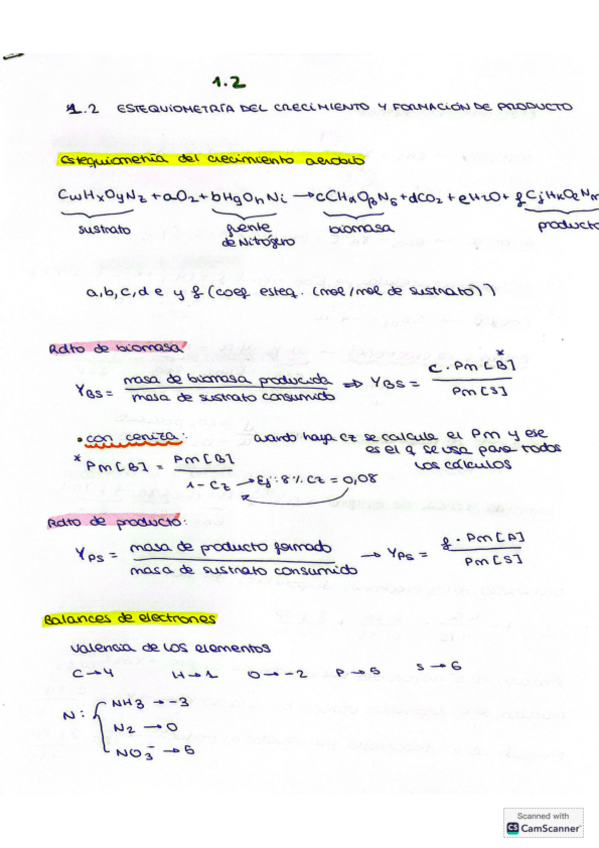 1.2
1.2 ESTEQUIOMETRÍA DEL CRECIMIENTO Y FORMACIÓN DE PRODUCTO
Estequiometría del crecimiento aerobio
CwHxOyNz + aO2 + bHgOhNi → cCHαOβNδ + dCO2 + eH2O + fCjHkOlNm
sustrato fuente de Nitrógeno biomasa producto
a,b,c,d e y f (coef esteq. (mol/mol de sustrato))
Rdto de biomasa
YBS = masa de biomasa producida / masa de sustrato consumido ⇒ YBS = c · Pm[B]* / Pm[S]
• con ceniza: cuando haya Cz se calcula el Pm y ese
es el q se usa para todos
los cálculos
* Pm[B] = Pm[B] / 1 - Cz → Ej: 8% Cz = 0,08
Rdto de producto:
YPS = masa de producto formado / masa de sustrato consumido → YPS = f · Pm[P] / Pm[S]
Balances de electrones
valencia de los elementos
C→4 H→1 O→-2 P→5 S→6
N: NH3 → -3
N2 → 0
NO3⁻ → 5
Scanned with
CS CamScanner